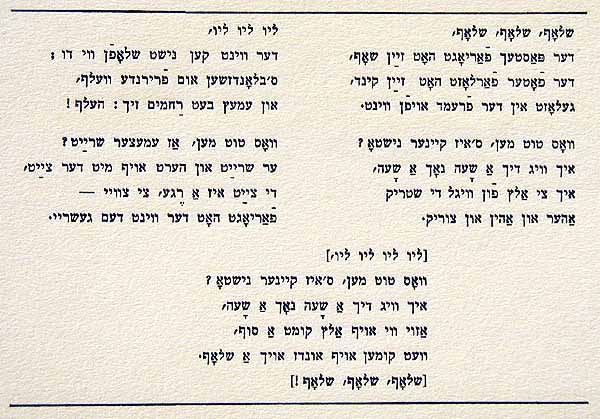 שלאָף, שלאָף, שלאָף,
דער פּאַסטעך פֿאַריאָגט האָט זײַן שאָף,
דער פֿאָטער פֿאַרלאָזט האָט זײַן קינד,
געלאָזט אין דער פֿרעמד אויפֿן ווינט.
וואָס טוט מען, ס׳איז קיינער נישטאָ?
איך וויג דיך אַ שָעה נאָך אַ שָעה,
איך צי אַלץ פֿון וויגל די שטריק
אַהער און אַהין און צוריק.
ליו ליו ליו,
דער ווינט קען נישט שלאָפֿן ווי דו:
ס׳בלאָנדזשען אום פֿרירנדע וועלף,
און עמעץ בעט רַחמים זיך: העלף!
וואָס טוט מען, אַז עמעצער שרײַט?
ער שרײַט און הערט אויף מיט דער צײַט,
די צײַט איז אַ רֶגע, צי צוויי —
פֿאַריאָגט האָט דער ווינט דעם געשריי.
[ליו ליו ליו ליו,]
וואָס טוט מען, ס׳איז קיינער נישטאָ?
איך וויג דיך אַ שָעה נאָך אַ שָעה,
אַזוי ווי אויף אַלץ קומט אַ סוף,
וועט קומען אויף אונדז אויך אַ שלאָף.
[שלאָף, שלאָף, שלאָף!]